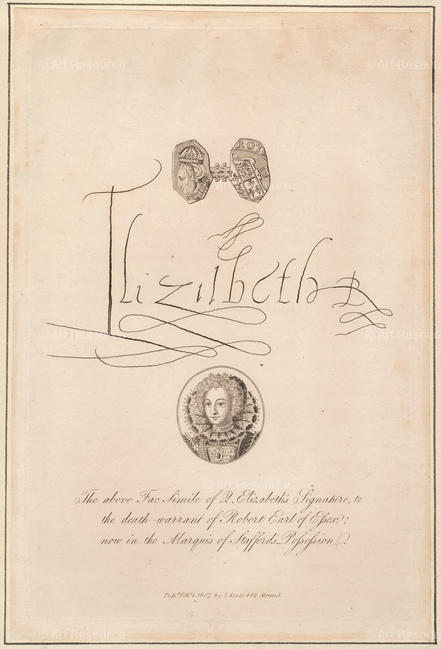 Elizabeth R
The above Fac Simile of Q. Elizabeth's Signature, to
the death-warrant of Robert Earl of Essex;
now in the Marquis of Stafford's Possession.
Pub. Feb. 1. 1807, by J. Scott 442, Strand.
© Art Resource